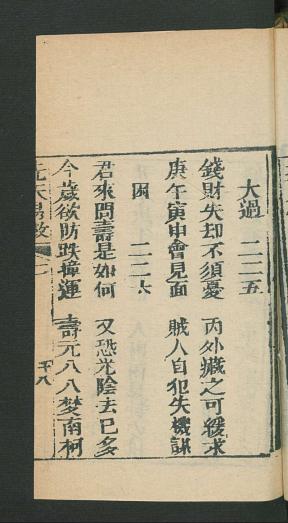 大過 二二五
錢財失却不須憂 内外藏之可緩求
庚午寅申會見面 賊人自犯失機謀
困 二二六
君來問壽是如何 又恐光陰去已多
今歲欲防跌撞運 壽元八八梦南柯
先天易数 二 十八